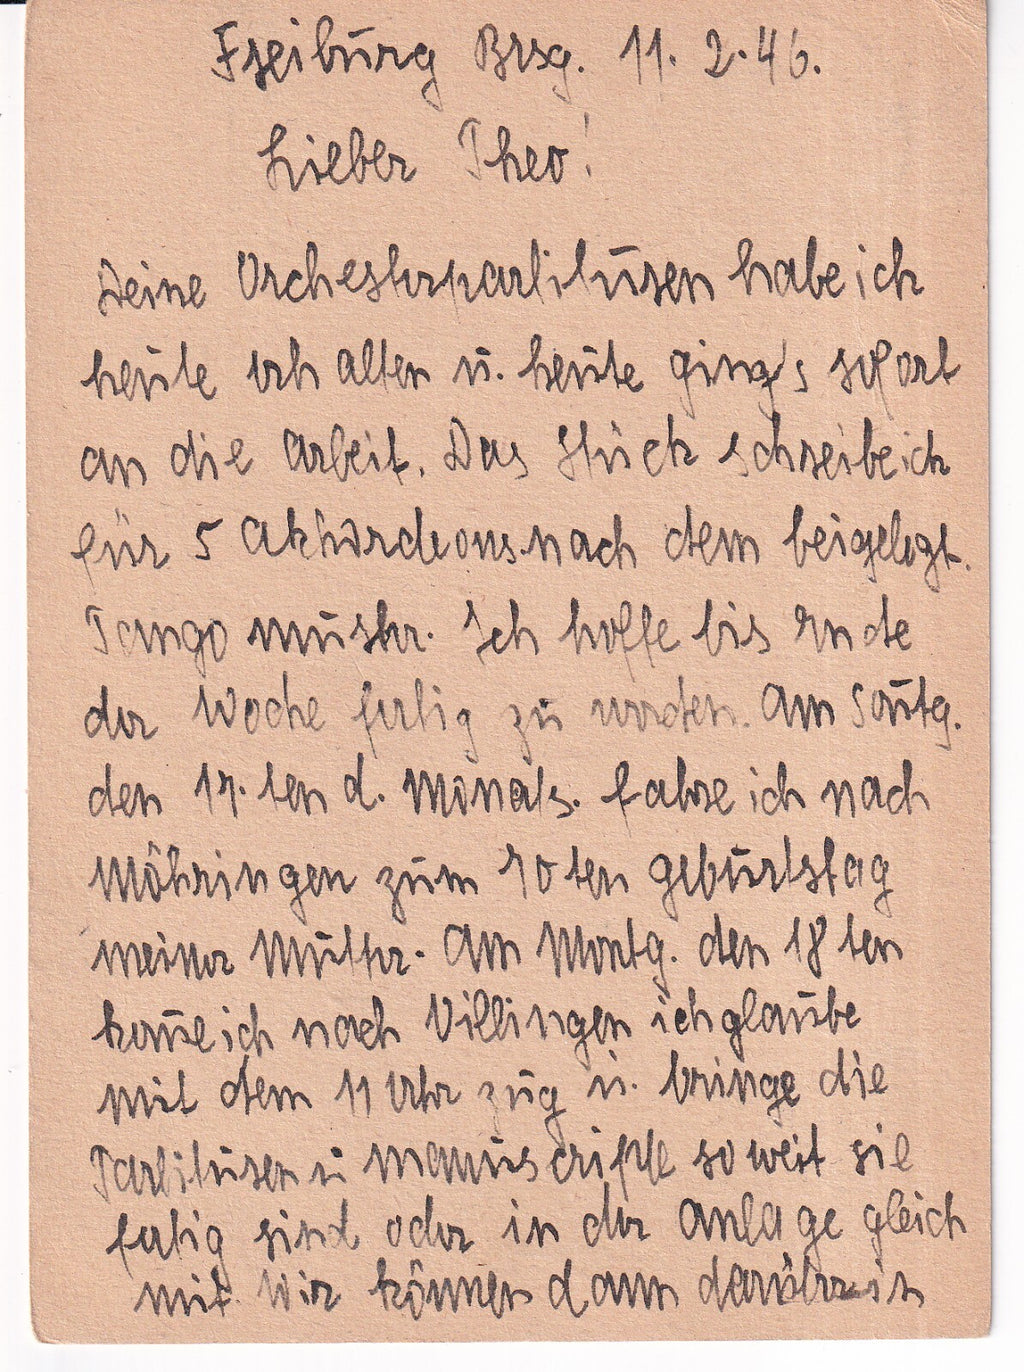 Freiburg Brsg. 11. 2. 46.
Lieber Theo!
Deine Orchesterpartituren habe ich
heute erhalten u. heute ging's sofort
an die Arbeit. Das Stück schreibe ich
für 5 Akkordeons nach dem beigelegt.
Tango muster. Ich hoffe bis Ende
der Woche fertig zu werden. Am Sontg.
den 17. ten d. Monats. fahre ich nach
Möhringen zum 70 ten geburtstag
meiner Mutter. Am Montg. den 18 ten
kome ich nach Villingen ich glaube
mit dem 11 Uhr zug u. bringe die
Partituren u manuscripte so weit sie
fertig sind oder in der Anlage gleich
mit. Wir können dann darüber in